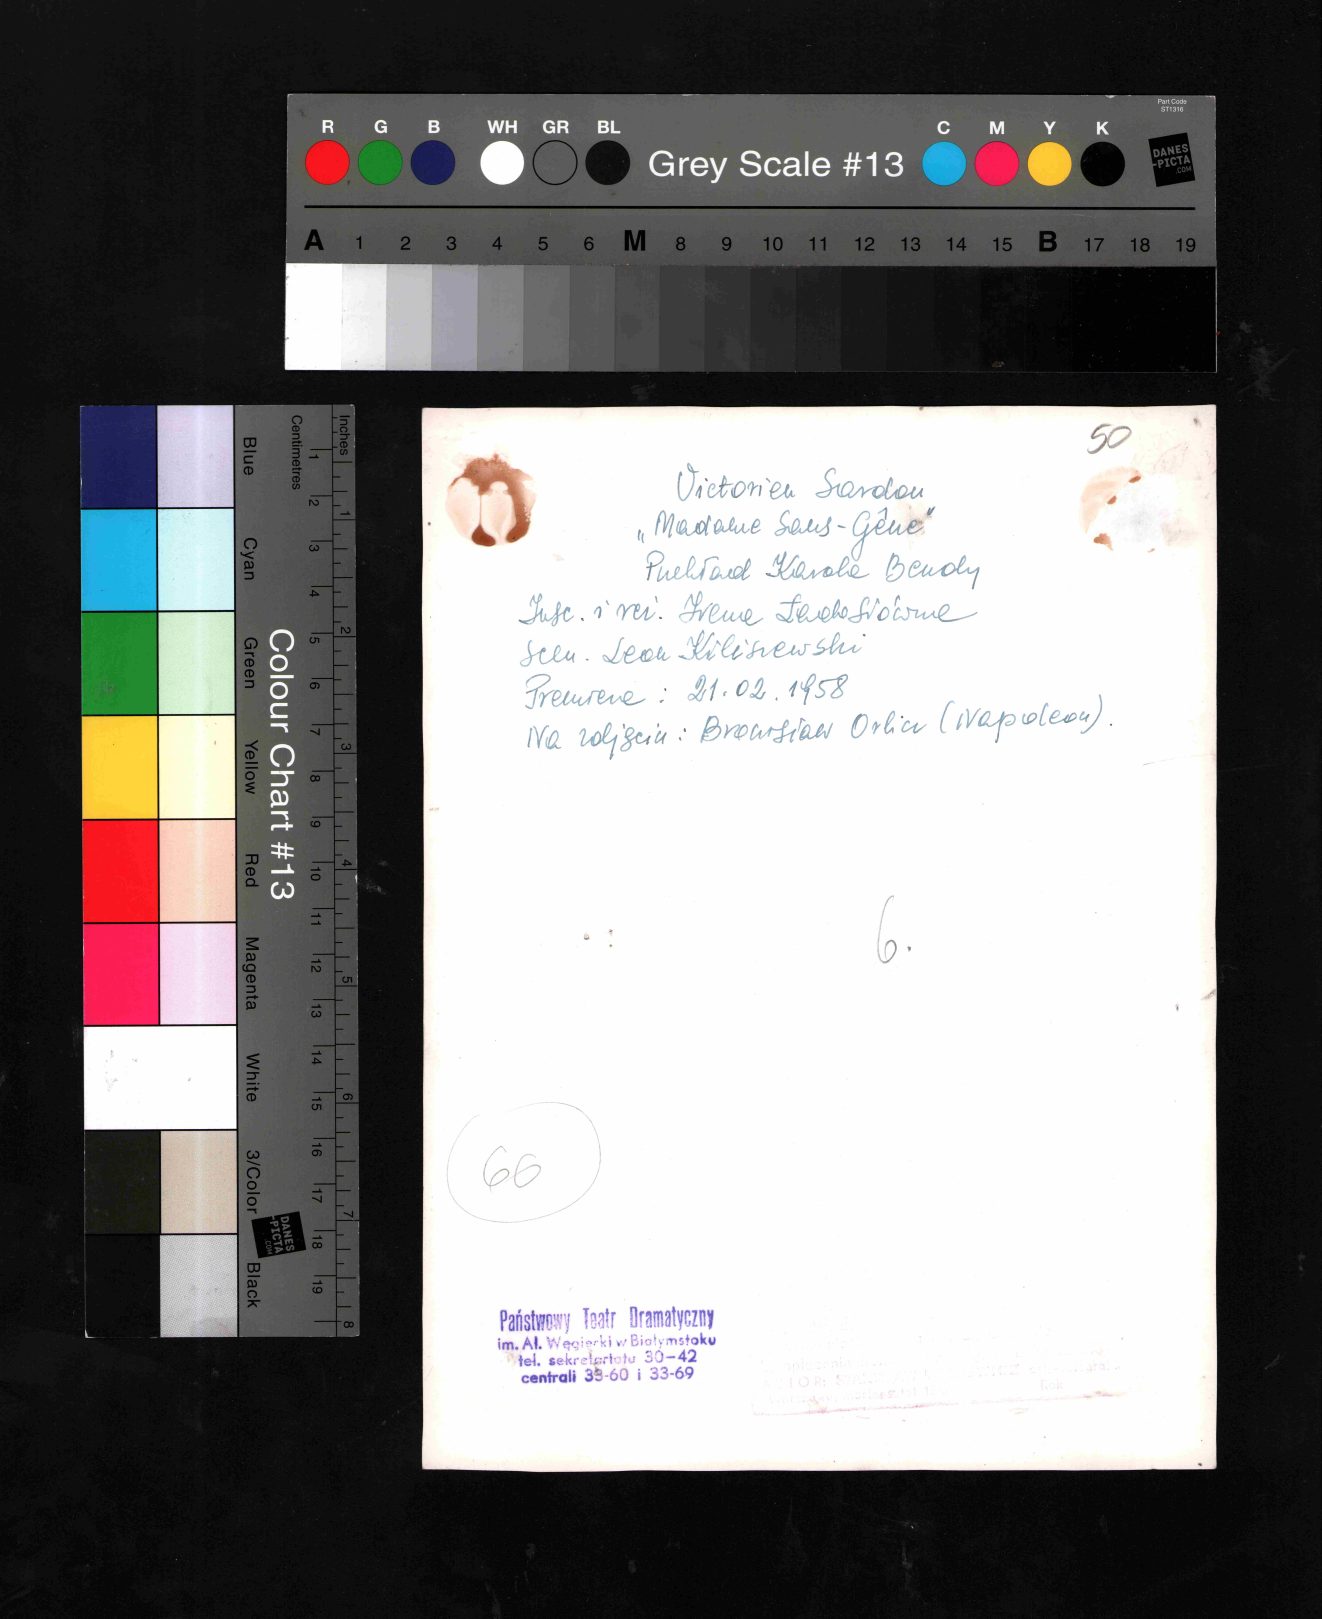 Part Code
ST1316
R G B WH GR BL
C M Y K
Grey Scale #13
DANES
-PICTA
.COM
A 1 2 3 4 5 6 M 8 9 10 11 12 13 14 15 B 17 18 19
Colour Chart #13
Blue
Cyan
Green
Yellow
Red
Magenta
White
3/Color
Black
Centimetres
1 2 3 4 5 6 7 8 9 10 11 12 13 14 15 16 17 18 19
Inches
1 2 3 4 5 6 7 8
DANES
-PICTA
.COM
50
Victorien Sardou
„Madame Sans-Gêne"
Przekład Karola Bendy
Insc. i reż. Irena Ładosiówna
Scen. Leon Kiliszewski
Premiera: 21.02.1958
Na zdjęciu: Bronisław Orlicz (Napoleon).
6.
66
Państwowy Teatr Dramatyczny
im. Al. Węgierki w Białymstoku
tel. sekretariatu 30-42
centrali 33-60 i 33-69
Rok